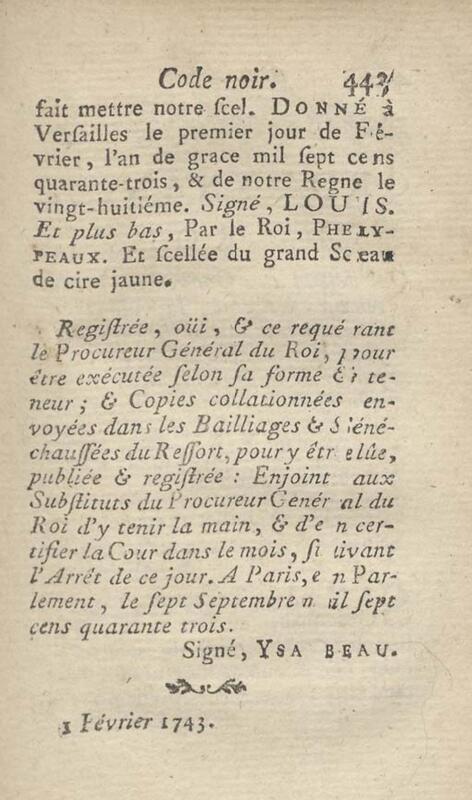 Code noir. 443
fait mettre notre ſcel. DONNÉ à
Verſailles le premier jour de Fé-
vrier, l'an de grace mil ſept cens
quarante-trois, & de notre Regne le
vingt-huitiéme. Signé, LOUIS.
Et plus bas, Par le Roi, PHELY-
PEAUX. Et ſcellée du grand Sceau
de cire jaune.
Regiſtrée, oüi, & ce requérant
le Procureur Général du Roi, pour
être exécutée ſelon ſa forme & te-
neur; & Copies collationnées en-
voyées dans les Bailliages & Séné-
chauſſées du Reſſort, pour y être lûe,
publiée & regiſtrée: Enjoint aux
Subſtituts du Procureur Genéral du
Roi d'y tenir la main, & d'en cer-
tifier la Cour dans le mois, ſuivant
l'Arrêt de ce jour. A Paris, en Par-
lement, le ſept Septembre mil ſept
cens quarante trois.
Signé, YSABEAU.
1 Février 1743.